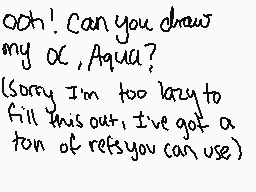 ooh! Can you draw
my OC, Aqua?
(sorry I'm too lazy to
fill this out, I've got a
ton of refs you can use)